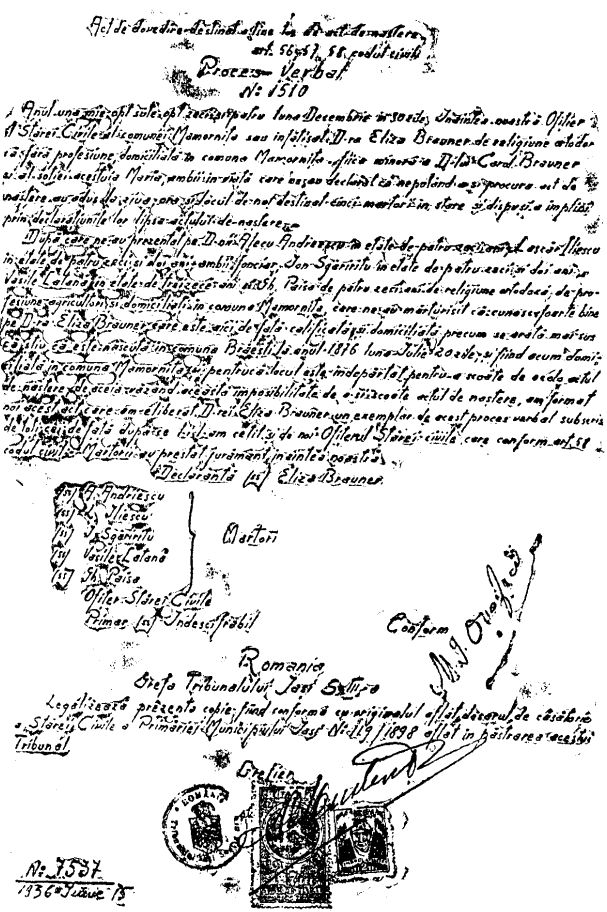 Act de dovedire destinat a ține loc de act de naștere
art. 56, 57, 58 codul civil
Proces-Verbal
No 1510
Anul una mie opt sute opt zeci și patru luna Decembrie în 30 zile, Înaintea noastră Ofițer
al Stărei Civile al comunei Mamornița s'au înfățișat D-ra Eliza Brauner de religiune ortodo-
xă fără profesiune, domiciliată în comuna Mamornița fiica minoră a D-lui Carol Brauner
și al soției acestuia Maria, ambii în viață care ne-au declarat că nepotând a-și procura act de
naștere au adus de ziua, ora și locul de naș destinat cinci martori în stare și dispuși a împlini
prin declarațiunile lor lipsa actului de naștere
După care ne au prezentat pe D-nii Alecu Andriescu în etate de patru zeci ani, Lascăr Iliescu
în etate de patru zeci și doi ani ambii foncțiar, Ion Sgăriritu în etate de patru zeci și doi ani
Vasile Latană în etate de treizeci ani și Gh. Paisa de patru zeci ani de religiune ortodocă, de pro-
fesiune agricultori și domiciliați în comuna Mamornița, care ne-au mărturisit că cunosc foarte bine
pe D-ra Eliza Brauner care este aici de față calificată și domiciliată precum se arată mai sus
că știu că este născută în comuna Brăești la anul 1876 luna Iulie 20 zile, și fiind acum domi-
ciliată în comuna Mamornița și pentrucă locul este îndepărtat pentru a scoate de acolo actul
de naștere, de aceia văzând această imposibilitate de a-și scoate actul de naștere, am format
noi acest act care am eliberat D-rei Eliza Brauner un exemplar de acest proces verbal subscris
de toți cei de față după ce li l-am cetit și de noi Ofițerul Stărei civile care conform art. 58
codul civil. Martorii au prestat jurământ înaintea noastră
Declarantă (ss) Eliza Brauner
(ss) A. Andriescu
(ss) L. Iliescu
(ss) I. Sgăriritu
(ss) Vasile Latană
(ss) Gh. Paisa
Martori
Ofițer Stărei Civile
Primar (ss) Indescifrabil
Conform
Romania
Grefa Tribunalului Iași
Legalizează prezenta copie fiind conformă cu originalul aflat dosarul de căsătorie
a Stărei Civile a Primăriei Municipiului Iași No 119/1898 aflat în păstrarea acestui
Tribunal
Grefier
ROMANIA
No 7537
1936 Iunie 15